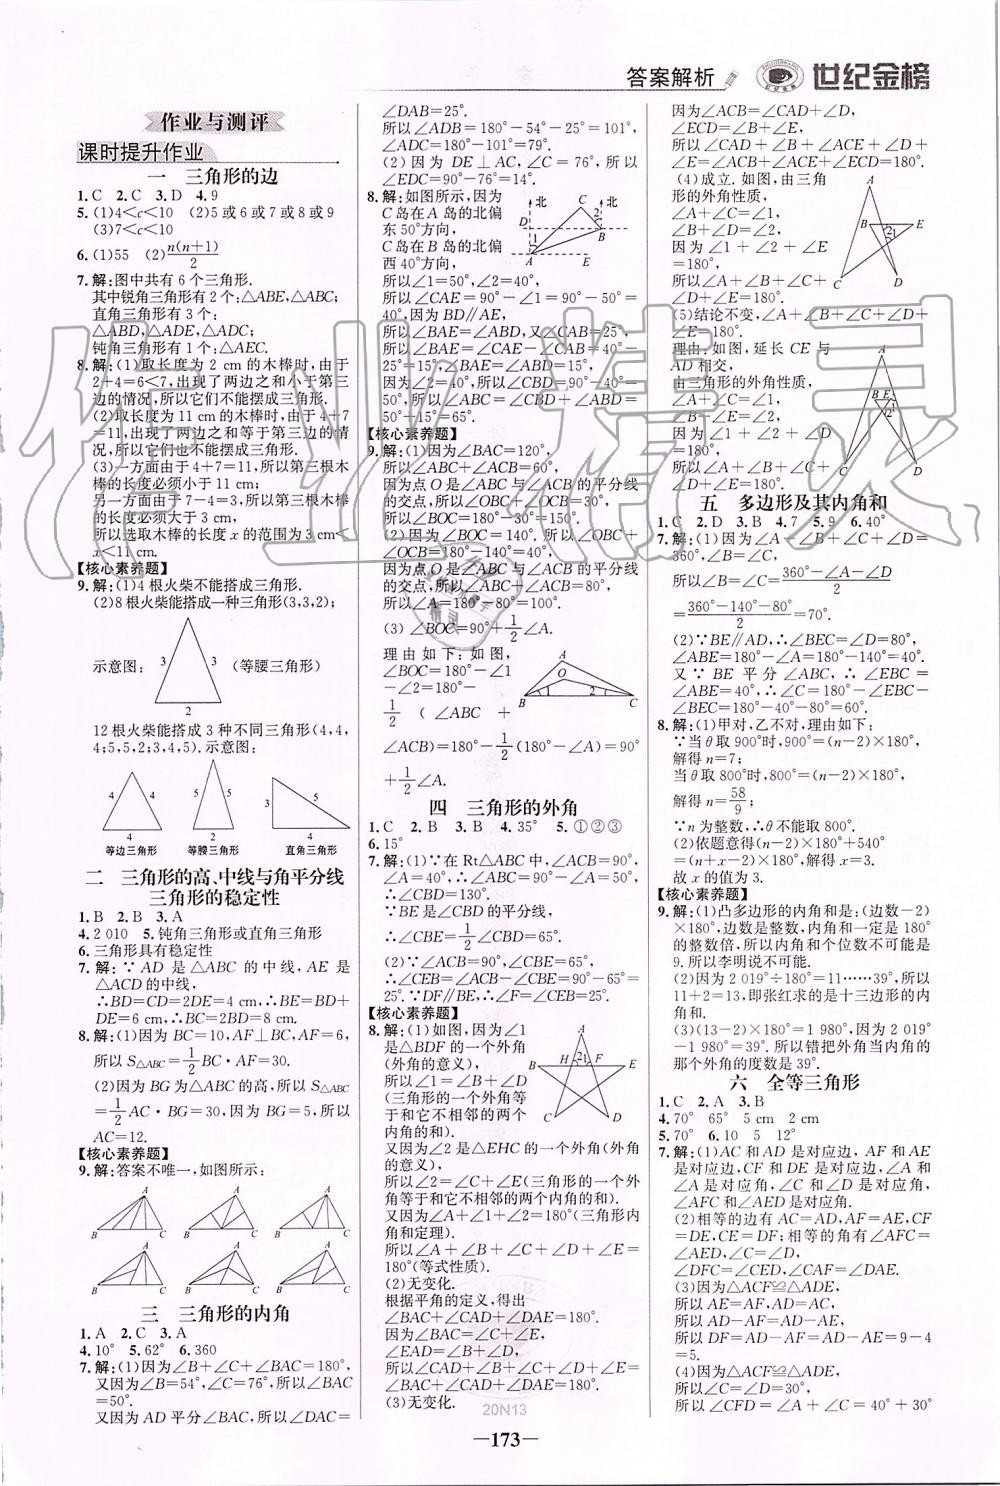 答案解析
世纪金榜
作业与测评
课时提升作业
一 三角形的边
1.C 2.C 3.D 4.9
5.(1)4<c<10 (2)5或6或7或8或9
(3)7<c<10
6.(1)55 (2)n(n+1)/2
7.解:图中共有6个三角形.
其中锐角三角形有2个:△ABE,△ABC;
直角三角形有3个:
△ABD,△ADE,△ADC;
钝角三角形有1个:△AEC.
8.解:(1)取长度为2 cm的木棒时,由于
2+4=6<7,出现了两边之和小于第三
边的情况,所以它们不能摆成三角形.
(2)取长度为11 cm的木棒时,由于4+7
=11,出现了两边之和等于第三边的情况,
所以它们也不能摆成三角形.
(3)一方面由于4+7=11,所以第三根木
棒的长度必须小于11 cm;
另一方面由于7-4=3,所以第三根木棒
的长度必须大于3 cm,
所以选取木棒的长度x的范围为3 cm<
x<11 cm.
【核心素养题】
9.解:(1)4根火柴不能搭成三角形.
(2)8根火柴能搭成一种三角形(3,3,2);
示意图: 3 3 2 (等腰三角形)
12根火柴能搭成3种不同三角形(4,4,
4;5,5,2;3,4,5).示意图:
4 4 4 5 5 2 3 5 4
等边三角形 等腰三角形 直角三角形
二 三角形的高、中线与角平分线
三角形的稳定性
1.B 2.B 3.A
4.2 010 5.钝角三角形或直角三角形
6.三角形具有稳定性
7.解:∵AD是△ABC的中线,AE是
△ACD的中线,
∴BD=CD=2DE=4 cm,∴BE=BD+
DE=6 cm,∴BC=2BD=8 cm.
8.解:(1)因为BC=10,AF⊥BC,AF=6,
所以S△ABC=1/2BC·AF=30.
(2)因为BG为△ABC的高,所以S△ABC
=1/2AC·BG=30,因为BG=5,所以
AC=12.
【核心素养题】
9.解:答案不唯一,如图所示:
A B C A B C A B C
A B C A B C A B C
三 三角形的内角
1.A 2.C 3.A
4.10° 5.62° 6.360
7.解:(1)因为∠B+∠C+∠BAC=180°,
又因为∠B=54°,∠C=76°,所以∠BAC
=50°.
又因为AD平分∠BAC,所以∠DAC=
∠DAB=25°.
所以∠ADB=180°-54°-25°=101°,
∠ADC=180°-101°=79°.
(2)因为DE⊥AC,∠C=76°,所以
∠EDC=90°-76°=14°.
8.解:如图所示,因为
C岛在A岛的北偏
东50°方向,
C岛在B岛的北偏
西40°方向,
北 北 C D 2 B 1 A E
所以∠1=50°,∠2=40°,
所以∠CAE=90°-∠1=90°-50°=
40°,因为BD∥AE,
所以∠BAE=∠ABD,又∠CAB=25°,
所以∠BAE=∠CAE-∠CAB=40°-
25°=15°,∠BAE=∠ABD=15°,
因为∠2=40°,所以∠CBD=90°-40°=
50°,所以∠ABC=∠CBD+∠ABD=
50°+15°=65°.
【核心素养题】
9.解:(1)因为∠BAC=120°,
所以∠ABC+∠ACB=60°,
因为点O是∠ABC与∠ACB的平分线
的交点,所以∠OBC+∠OCB=30°,
所以∠BOC=180°-30°=150°.
(2)因为∠BOC=140°,所以∠OBC+
∠OCB=180°-140°=40°,
因为点O是∠ABC与∠ACB的平分线
的交点,所以∠ABC+∠ACB=80°,
所以∠A=180°-80°=100°.
(3) ∠BOC=90°+1/2∠A.
理由如下:如图,
∠BOC=180°-∠1
-∠2=180°-
1/2(∠ABC+
∠ACB)=180°-1/2(180°-∠A)=90°
+1/2∠A.
A O 1 2 B C
四 三角形的外角
1.C 2.B 3.B 4.35° 5.①②③
6.15°
7.解:(1)∵在Rt△ABC中,∠ACB=90°,
∠A=40°,∴∠ABC=90°-∠A=50°,
∴∠CBD=130°.
∵BE是∠CBD的平分线,
∴∠CBE=1/2∠CBD=65°.
(2)∵∠ACB=90°,∠CBE=65°,
∴∠CEB=∠ACB-∠CBE=90°-65°=
25°.∵DF∥BE,∴∠F=∠CEB=25°.
【核心素养题】
8.解:(1)如图,因为∠1
是△BDF的一个外角
(外角的意义),
所以∠1=∠B+∠D
(三角形的一个外角等
于和它不相邻的两个
内角的和).
A B H 2 1 F E C D
又因为∠2是△EHC的一个外角(外角
的意义),
所以∠2=∠C+∠E(三角形的一个外
角等于和它不相邻的两个内角的和).
又因为∠A+∠1+∠2=180°(三角形内
角和定理).
所以∠A+∠B+∠C+∠D+∠E=
180°(等式性质).
(2)无变化.
根据平角的定义,得出
∠BAC+∠CAD+∠DAE=180°.
因为∠BAC=∠C+∠E,
∠EAD=∠B+∠D,
所以∠CAD+∠B+∠C+∠D+∠E=
∠BAC+∠CAD+∠DAE=180°.
(3)无变化.
因为∠ACB=∠CAD+∠D,
∠ECD=∠B+∠E,
所以∠CAD+∠B+∠ACE+∠D+
∠E=∠ACB+∠ACE+∠ECD=180°.
(4)成立.如图,由三角
形的外角性质,
∠A+∠C=∠1,
∠B+∠D=∠2,
因为∠1+∠2+∠E
=180°,
所以∠A+∠B+∠C+
∠D+∠E=180°.
A B 2 1 E C D
(5)结论不变,∠A+∠B+∠C+∠D+
∠E=180°.
理由:如图,延长CE与
AD相交,
由三角形的外角性质,
∠A+∠C=∠1,
∠B+∠E=∠2,
因为∠1+∠2+∠D
=180°,
所以∠A+∠B+∠C+
∠D+∠E=180°.
A B E 2 1 C D
五 多边形及其内角和
1.C 2.D 3.B 4.7 5.9 6.40°
7.解:(1)因为∠A+∠B+∠C+∠D=
360°,∠B=∠C,
所以∠B=∠C=(360°-∠A-∠D)/2
=(360°-140°-80°)/2=70°.
(2)∵BE∥AD,∴∠BEC=∠D=80°,
∠ABE=180°-∠A=180°-140°=40°.
又∵BE平分∠ABC,∴∠EBC=
∠ABE=40°,∴∠C=180°-∠EBC-
∠BEC=180°-40°-80°=60°.
8.解:(1)甲对,乙不对,理由如下:
∵当θ取900°时,900°=(n-2)×180°,
解得n=7;
当θ取800°时,800°=(n-2)×180°,
解得n=58/9;
∵n为整数,∴θ不能取800°.
(2)依题意得(n-2)×180°+540°
=(n+x-2)×180°,解得x=3.
故x的值为3.
【核心素养题】
9.解:(1)凸多边形的内角和是:(边数-2)
×180°,边数是整数,内角和一定是180°
的整数倍,所以内角和个位数不可能是
9.所以李明说不可能.
(2)因为2 019°÷180°=11……39°,所以
11+2=13,即张红求的是十三边形的内
角和.
(3)(13-2)×180°=1 980°,因为2 019°
-1 980°=39°.所以错把外角当内角的
那个外角的度数是39°.
六 全等三角形
1.C 2.A 3.B
4.70° 65° 5 cm 2 cm
5.70° 6.10 5 12°
7.解:(1)AC和AD是对应边,AF和AE
是对应边,CF和DE是对应边,∠A和
∠A是对应角,∠C和∠D是对应角,
∠AFC和∠AED是对应角.
(2)相等的边有AC=AD,AF=AE,CF
=DE,CE=DF;相等的角有∠AFC=
∠AED,∠C=∠D,
∠DFC=∠CED,∠CAF=∠DAE.
(3)因为△ACF≌△ADE,
所以AE=AF,AD=AC,
所以AD-AF=AD-AE,
所以DF=AD-AF=AD-AE=9-4
=5.
(4)因为△ACF≌△ADE,
所以∠C=∠D=30°,
所以∠CFD=∠A+∠C=40°+30°
作业精灵
20N13
—173—